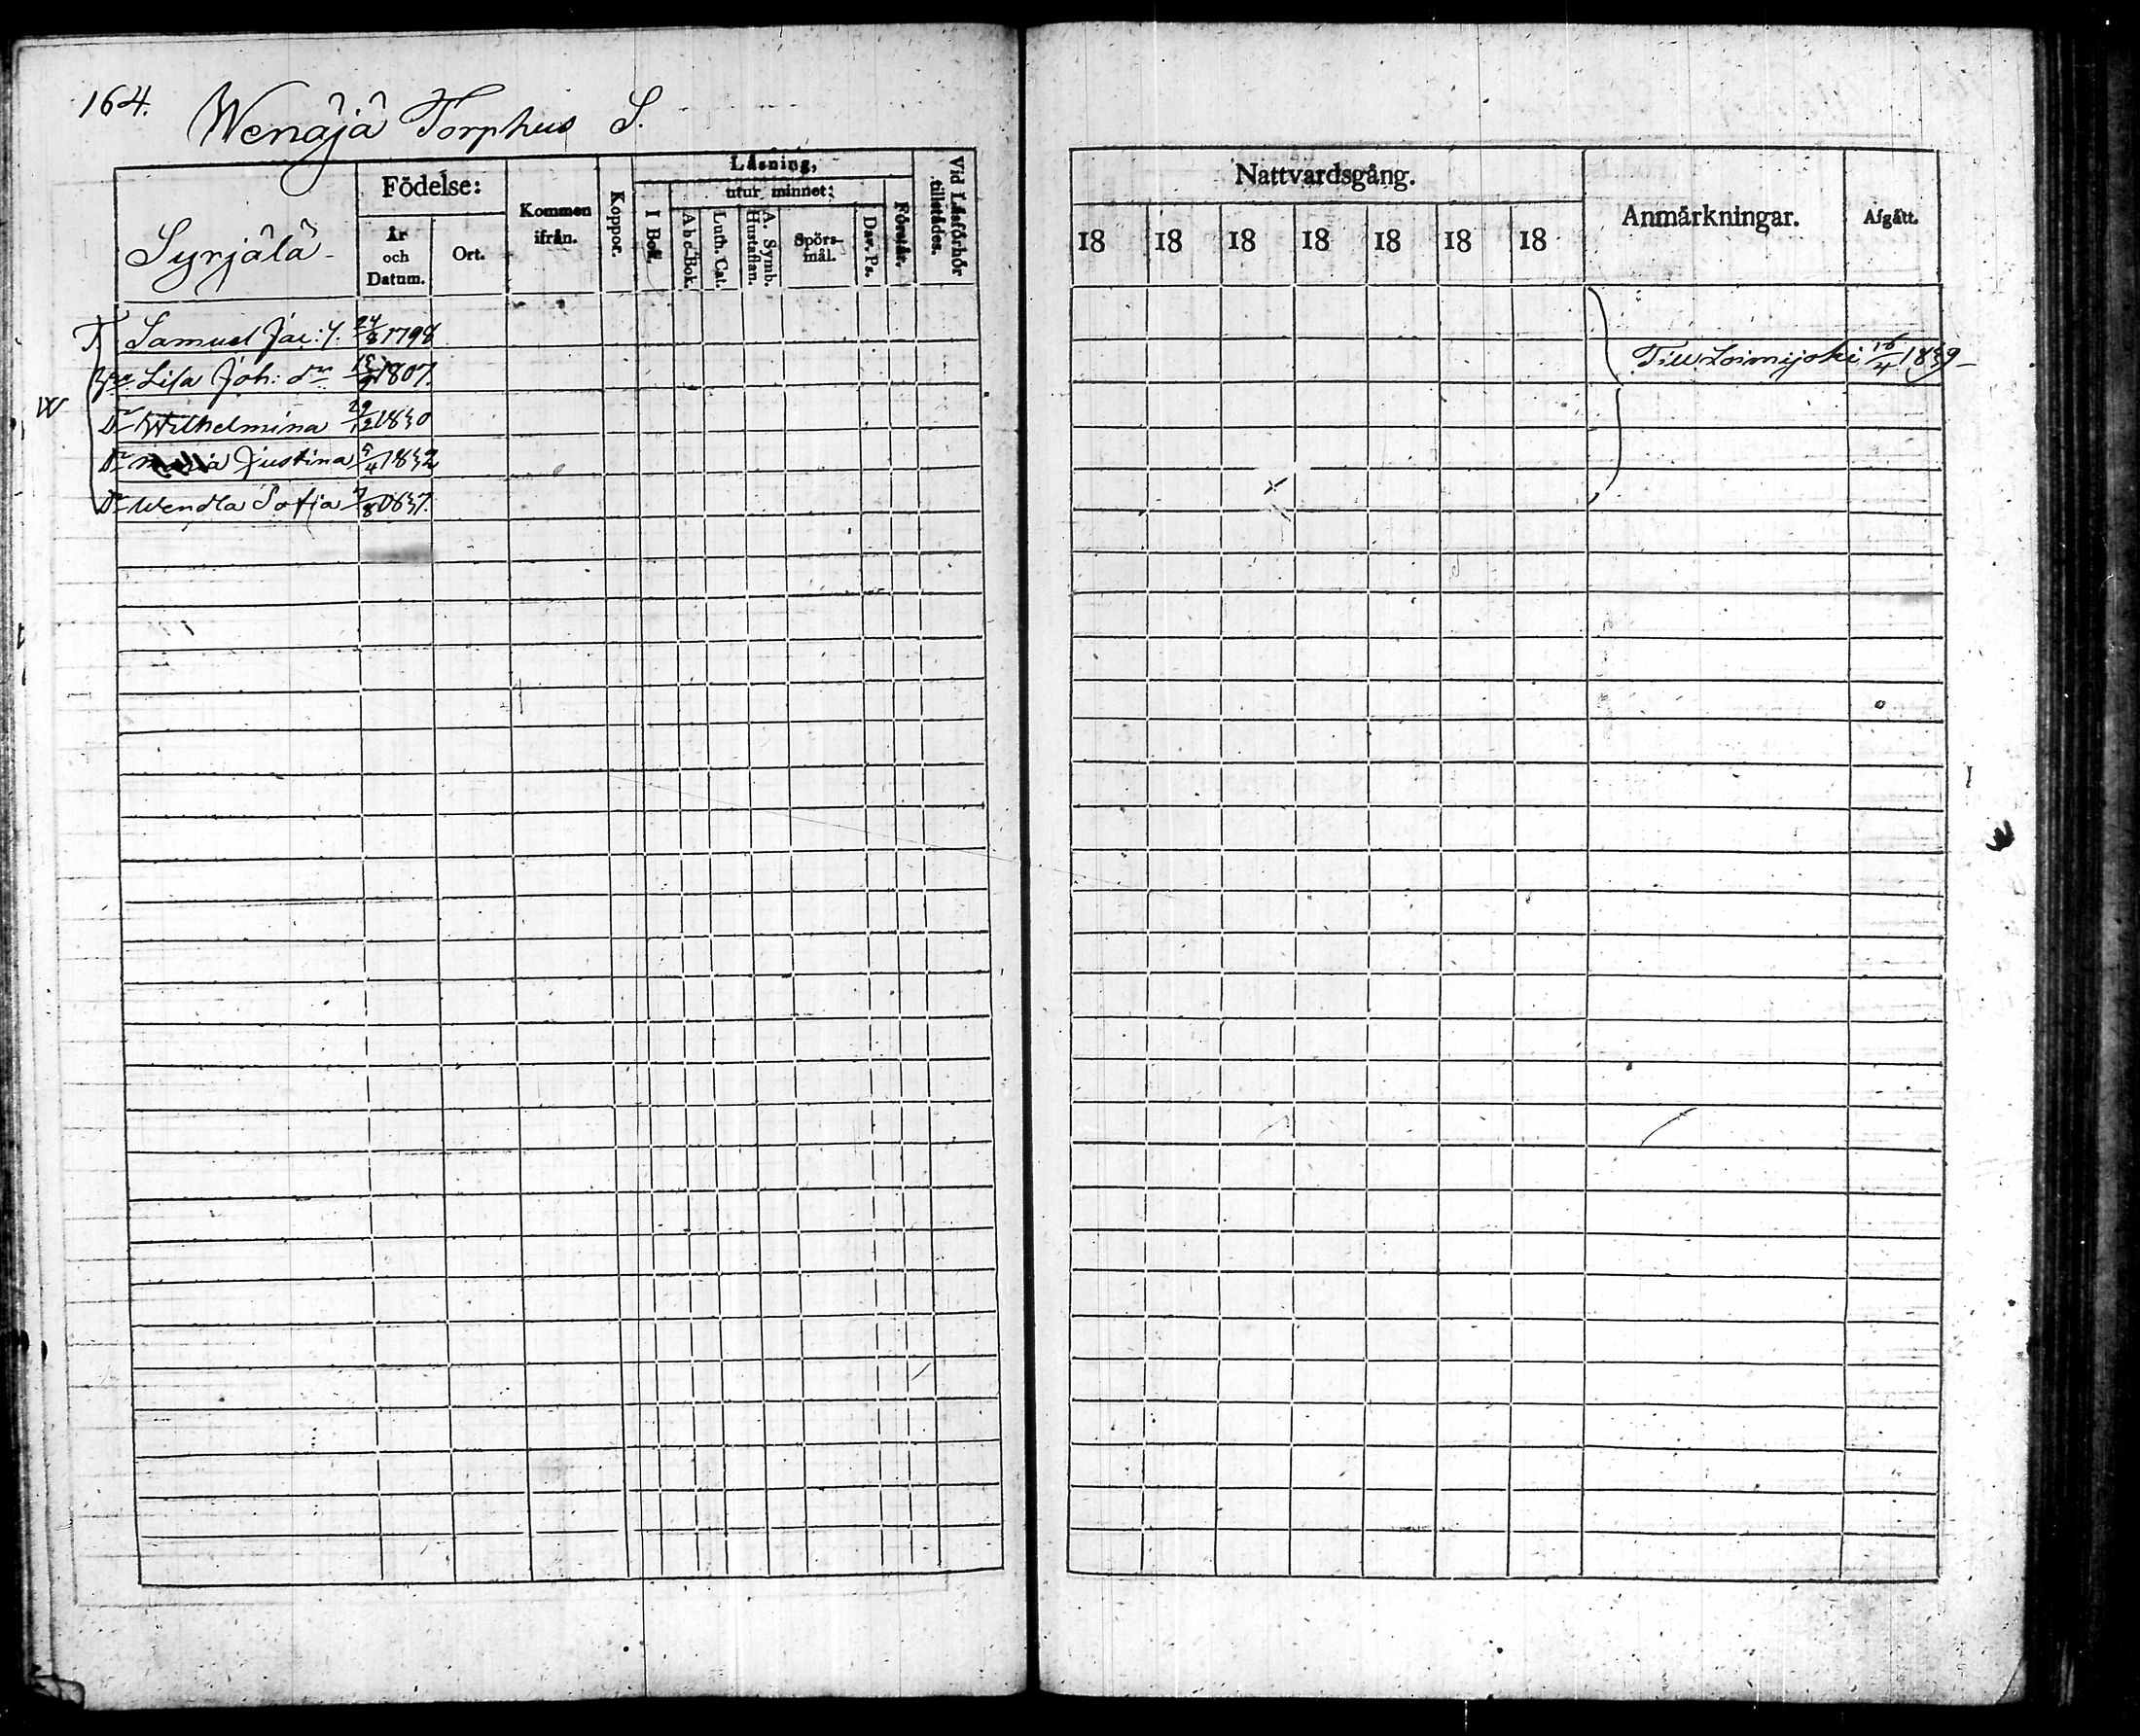 164.
Wenäjä Torphus S.
Syrjälä
Födelse:
År och Datum.
Ort.
Kommen ifrån.
Koppor.
Läsning,
utur minnet:
I Bok.
Abc-Bok.
Luth. Cat.
A. Symb. Hustaflan.
Spörsmål.
Dav. Ps.
Förstår.
Vid Läsförhör tillstädes.
Nattvardsgång.
18 18 18 18 18 18 18
Anmärkningar.
Afgått.
T Samuel Jac: 24/8 1798
Lisa Joh: dr 1807.
Till Loimijoki 16/4 1839
W
Dr Wilhelmina 29/12 1830
Dr Maria Justina 5/4 1832
Dr Wendla Sofia 7/8 1837.